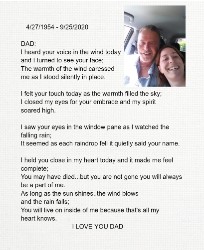 4/27/1954 - 9/25/2020
DAD:
I heard your voice in the wind today
and I turned to see your face;
The warmth of the wind caressed
me as I stood silently in place.
I felt your touch today as the warmth filled the sky;
I closed my eyes for your embrace and my spirit
soared high.
I saw your eyes in the window pane as I watched the
falling rain;
It seemed as each raindrop fell it quietly said your name.
I held you close in my heart today and it made me feel
complete;
You may have died...but you are not gone you will always
be a part of me.
As long as the sun shines, the wind blows
and the rain falls;
You will live on inside of me because that's all my
heart knows.
I LOVE YOU DAD